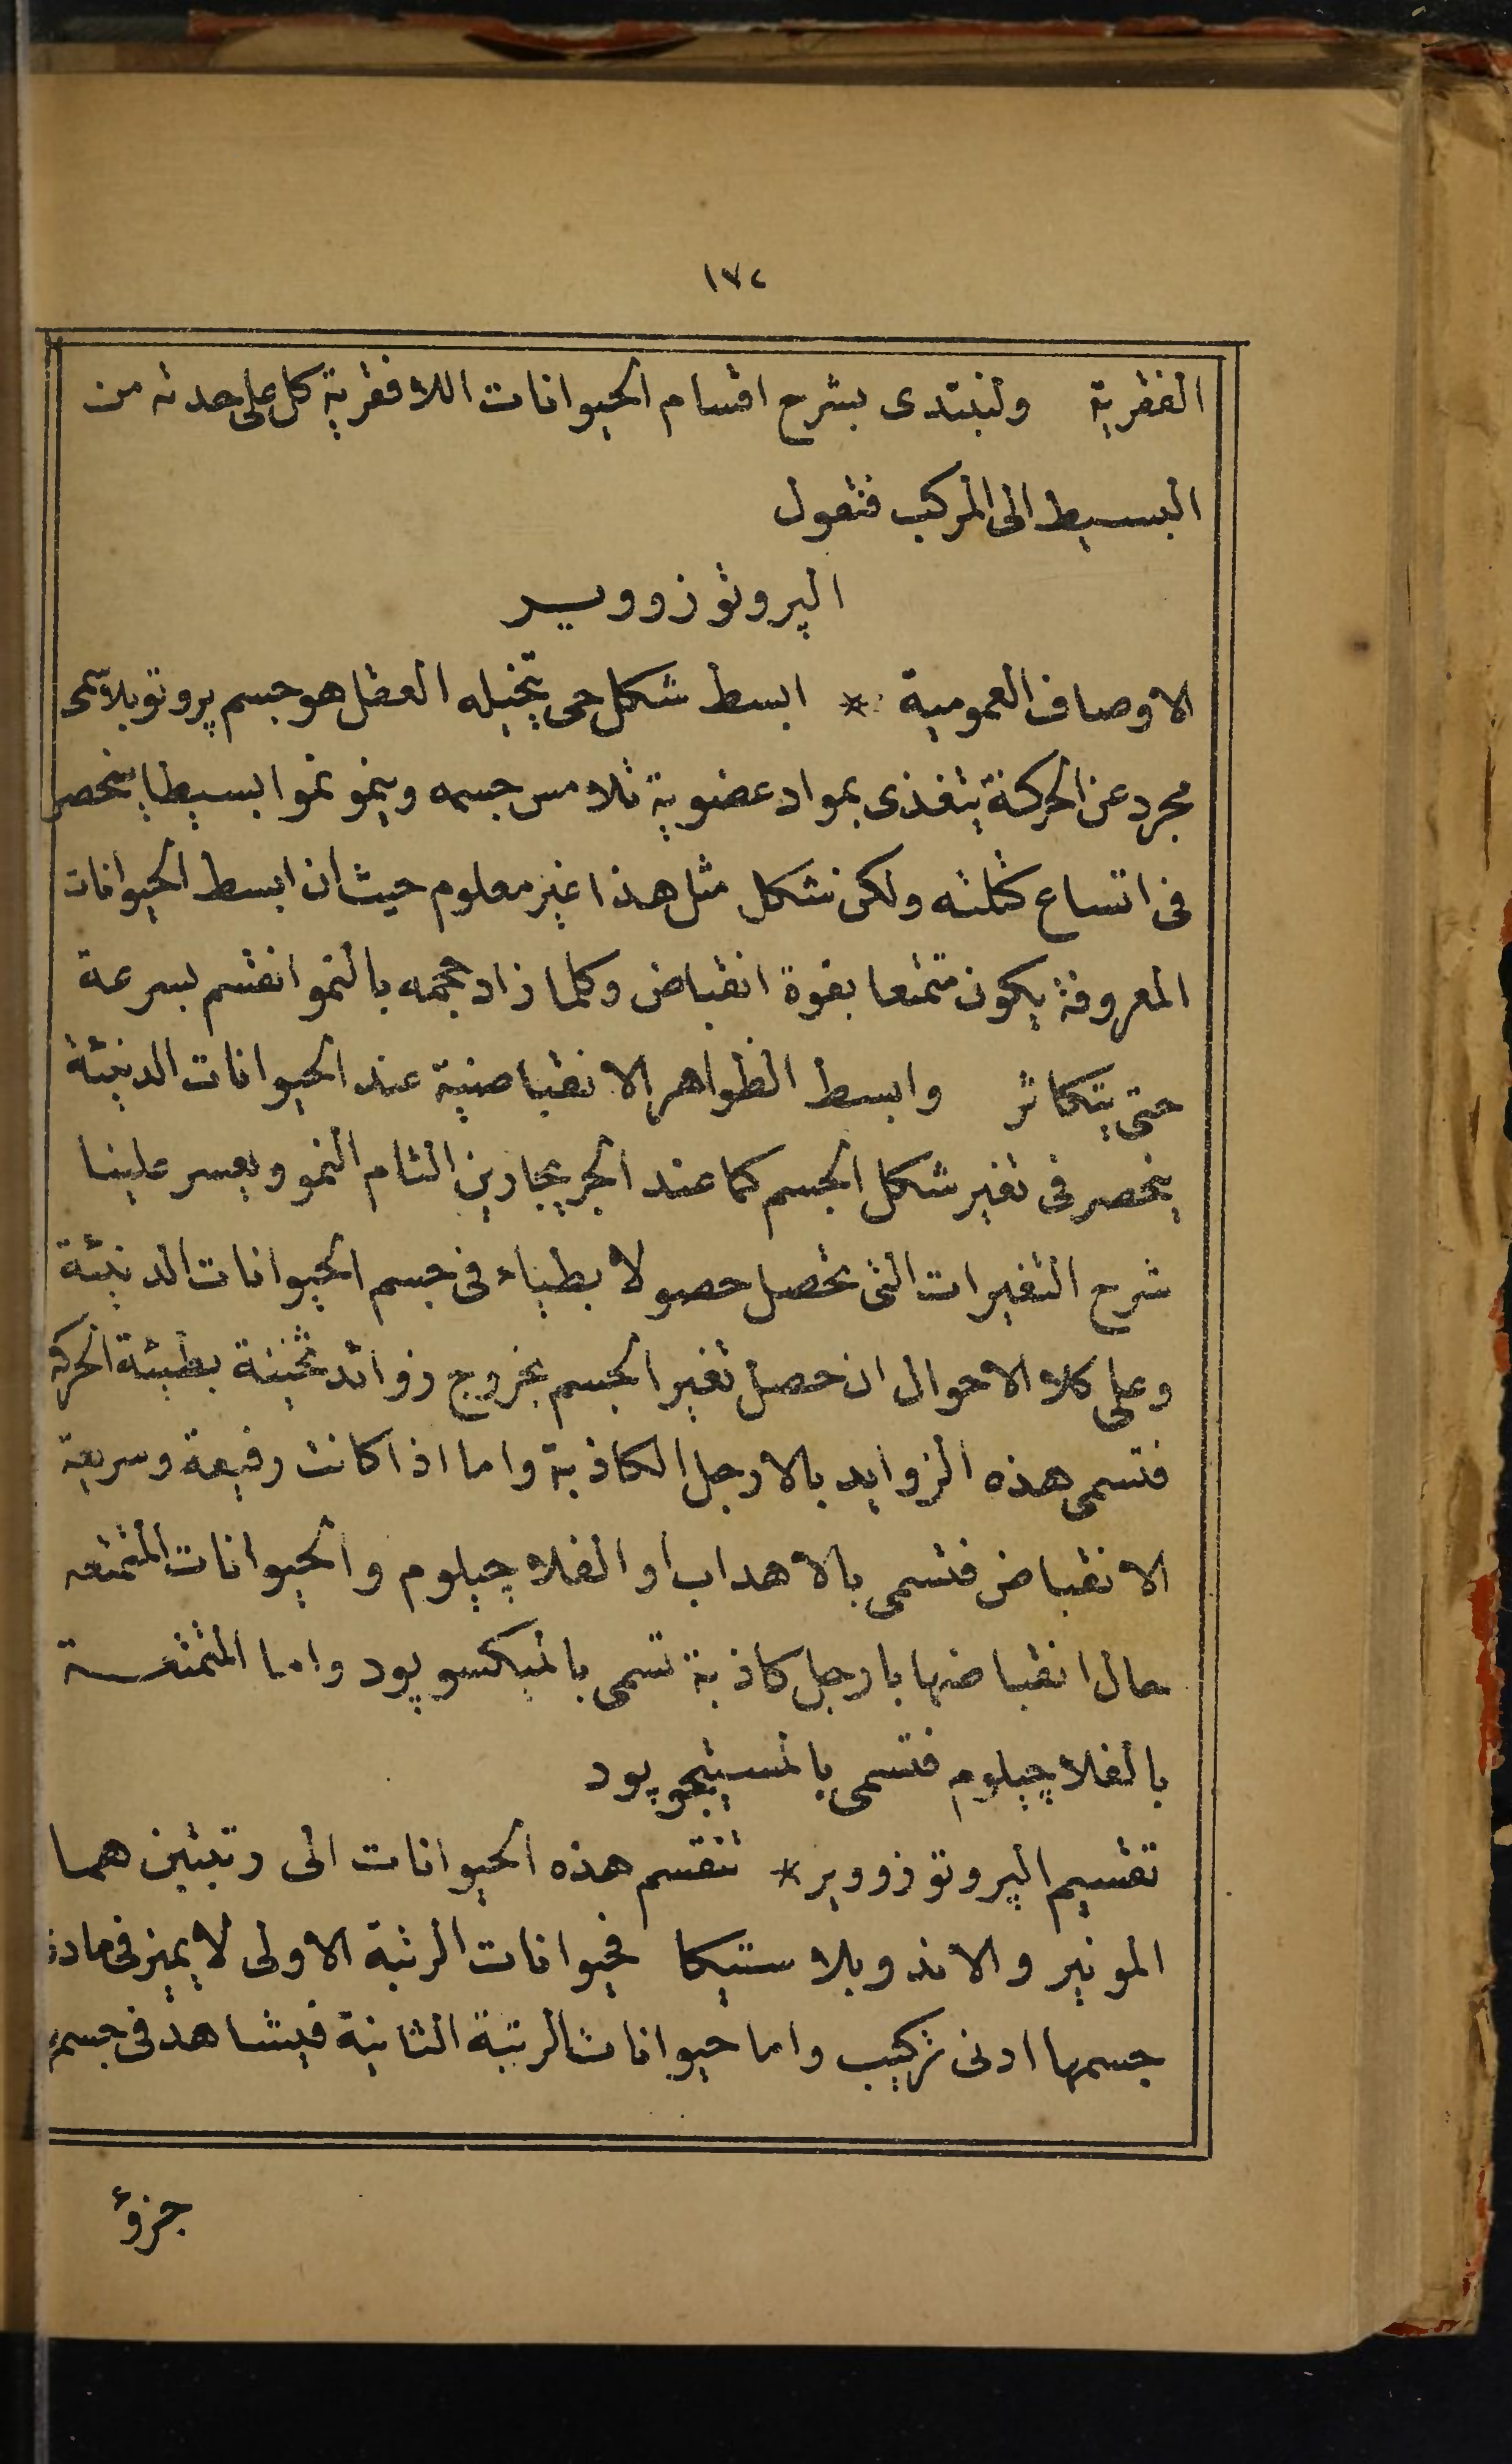 ١٧٢
الفقرية ولنبتدى بشرح اقسام الحيوانات اللافقرية كل على حدته من
البسيط الى المركب فنقول
الپروتوزووير
الاوصاف العمومية * ابسط شكل حى يتخيله العقل هو جسم پروتوپلاسمى
مجرد عن الحركة يتغذى بمواد عضوية تلامس جسمه وينمو نموا بسيطا ينحصر
فى اتساع كتلته ولكن شكل مثل هذا غير معلوم حيث ان ابسط الحيوانات
المعروفة يكون متمتعا بقوة انقباض وكلما زاد حجمه بالنمو انقسم بسرعة
حتى يتكاثر وابسط الظواهر الانقباضية عند الحيوانات الدنيئة
ينحصر فى تغير شكل الجسم كما عند الجريجارين التام النمو ويعسر علينا
شرح التغيرات التى تحصل حصولا بطياء فى جسم الحيوانات الدنيئة
وعلى كلا الاحوال ان حصل تغير الجسم بخروج زوائد ثخينة بطيئة الحركة
فتسمى هذه الزوايد بالارجل الكاذبة واما اذا كانت رفيعة وسريعة
الانقباض فتسمى بالاهداب او الفلاچيلوم والحيوانات المتمتعه
حال انقباضها بارجل كاذبة تسمى بالميكسوپود واما المتمتعة
بالفلاچيلوم فتسمى بالمستيجوپود
تقسيم الپروتوزووير * تنقسم هذه الحيوانات الى رتبتين هما
المونير والاندوپلاستيكا فحيوانات الرتبة الاولى لا يميز فى مادة
جسمها ادنى تركيب واما حيوانات الرتبة الثانية فيشاهد فى جسمها
جزؤ